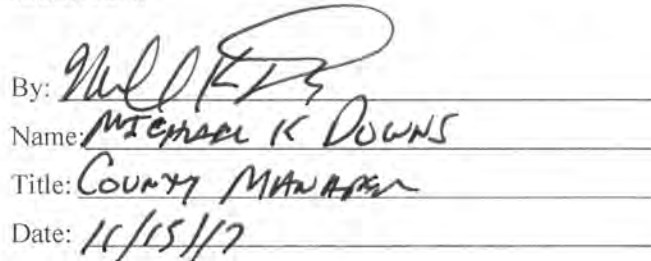 By:
Name: MICHAEL K DOWNS
Title: COUNTY MANAGER
Date: 11/15/17